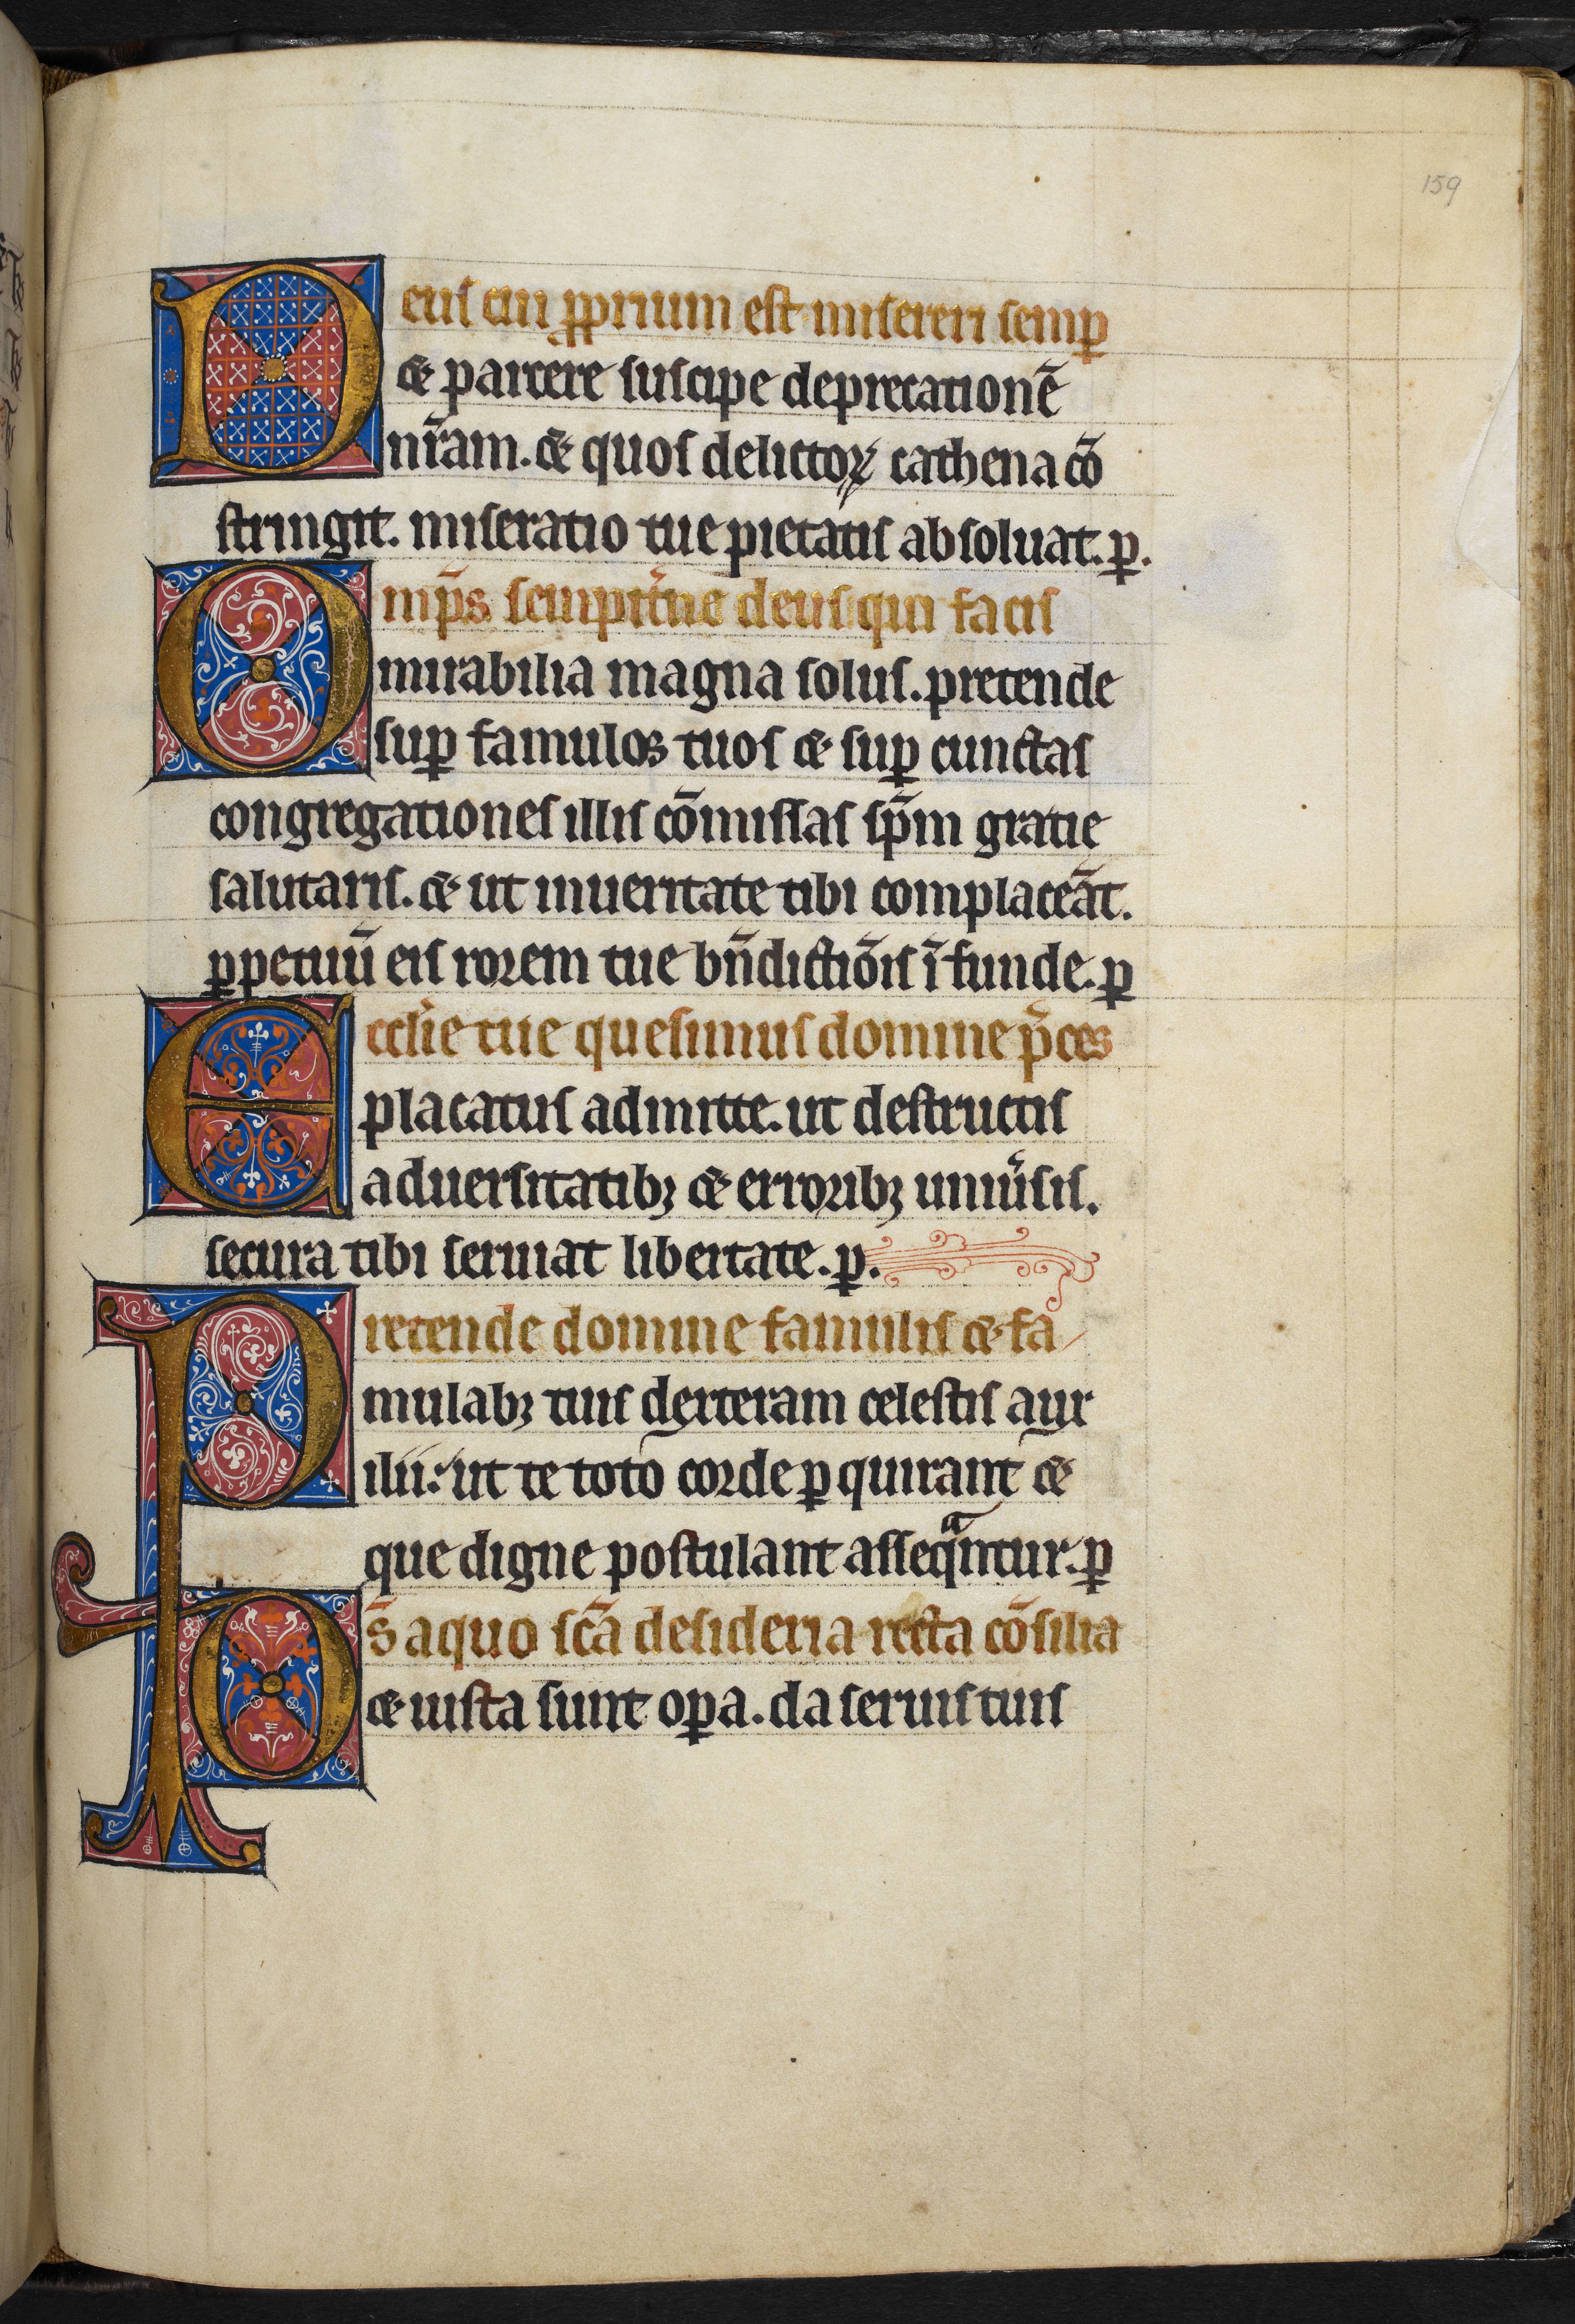 159
Deus cui pprium est misereri semp
⁊ parcere suscipe deprecationē
nr̄am. ⁊ quos delictoꝝ cathena cō
stringit. miseratio tue pietatis absoluat. p.
Omp̄s sempit̾ne deus qui facis
mirabilia magna solus. pretende
suꝑ famulos tuos ⁊ suꝑ cunctas
congregationes illis cōmissas sp̄m gratie
salutaris. ⁊ ut inueritate tibi complaceāt.
ꝑpetuū eis rorem tue bn̄dictiōis īfunde. ꝑ
Ecclīe tue quesumus domine p̄ces
placatus admitte. ut destructis
aduersitatibꝫ ⁊ erroribꝫ uniu̾sis.
secura tibi seruiat libertate. ꝑ.
Pretende domine famulis ⁊ fa
mulabꝫ tuis dexteram celestis aux
ilii: ut te toto corde ꝑquirant ⁊
que digne postulant asseqͣntur. ꝑ
Ds̄ aquo sc̄a desideria recta cōsilia
⁊ iusta sunt oꝑa. da seruis tuis